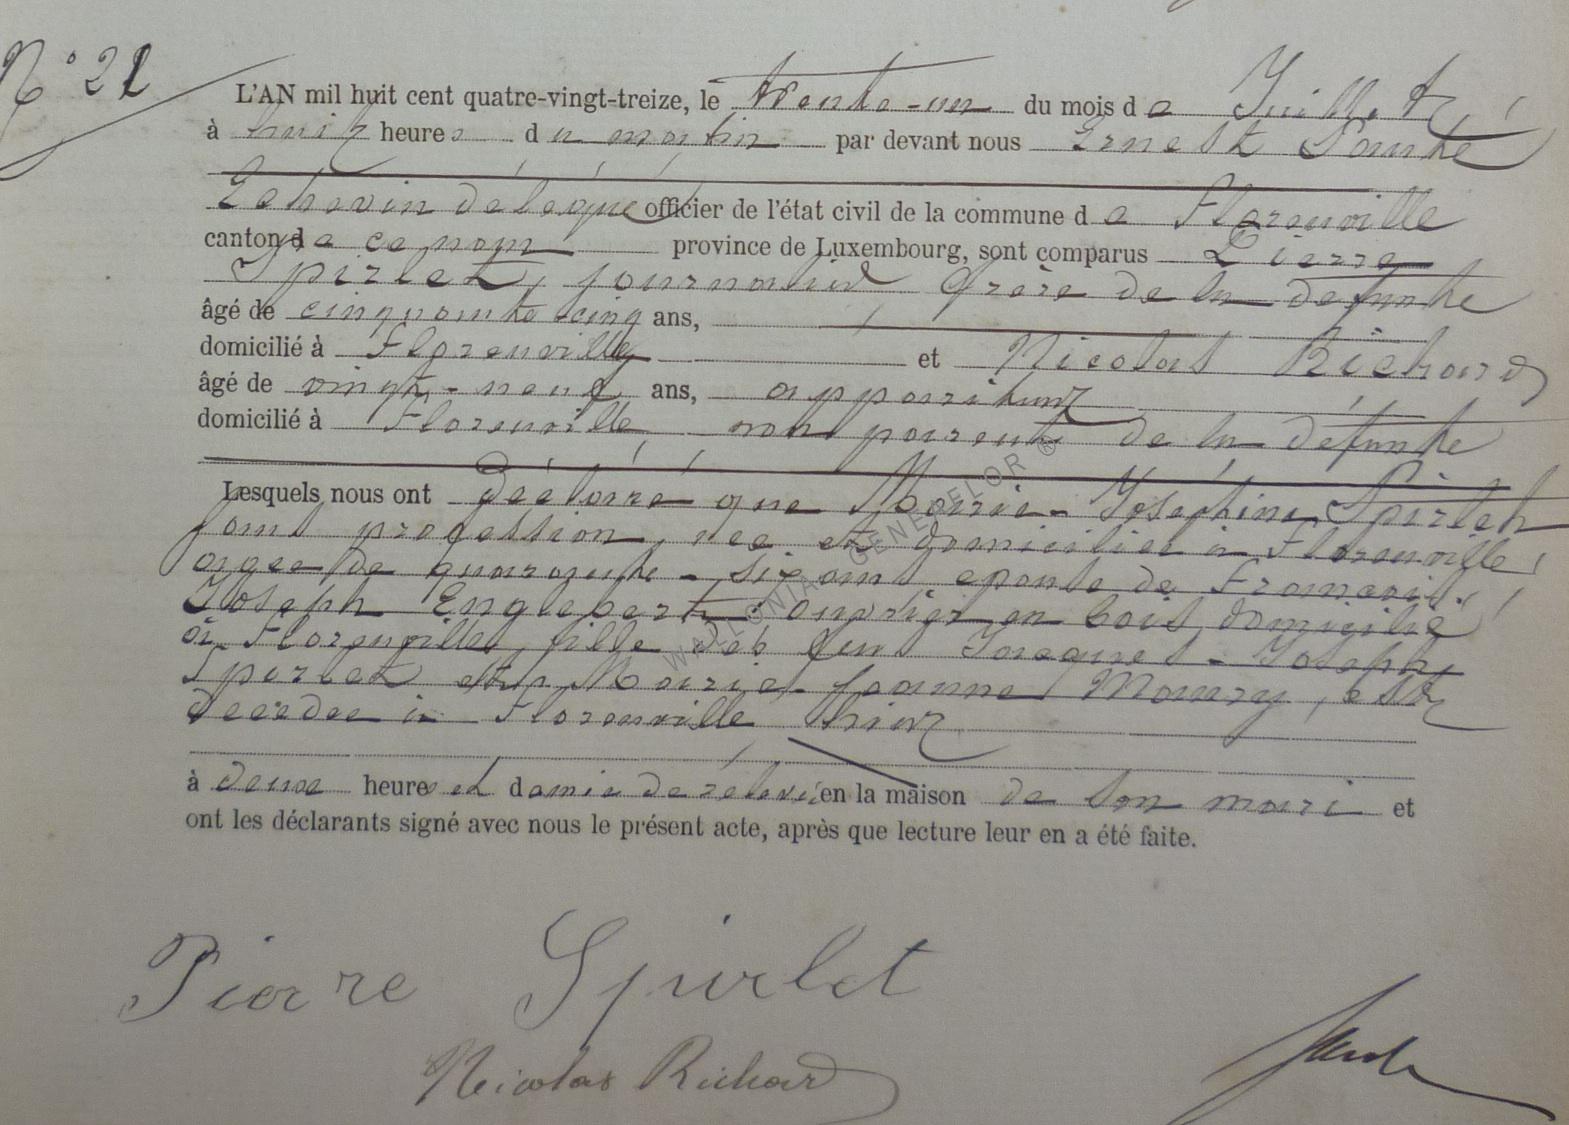 N° 22
L'AN mil huit cent quatre-vingt-treize, le trente-un du mois de Juillet
à huit heures du matin par devant nous Ernest
Echevin délégué officier de l'état civil de la commune de Florenville
canton de ce nom province de Luxembourg, sont comparus Pierre
Spirlet, journalier frère de la defunte
âgé de cinquante-cinq ans,
domicilié à Florenville et Nicolas Richard
âgé de vingt-neuf ans, appariteur
domicilié à Florenville non parent de la défunte
Lesquels nous ont déclaré que Marie-Joséphine Spirlet
sans profession, née et domiciliée à Florenville,
agée de quarante-six ans épouse de François
Joseph Englebert ouvrier en bois, domicilié
à Florenville, fille des feus Jacques-Joseph
Spirlet et Marie-Jeanne Maury, est
décédée à Florenville hier
à deux heures et demie de relevée en la maison de son mari et
ont les déclarants signé avec nous le présent acte, après que lecture leur en a été faite.
WALLONIA GENEDELOR ©
Pierre Spirlet
Nicolas Richard